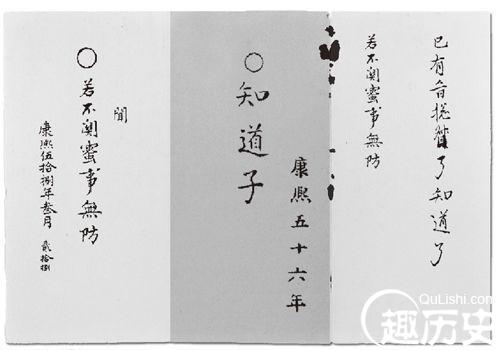 已有旨搃督了知道了
若不闗蜜事無防
康熙五十六年
○知道子
閒
○若不闗蜜事無防
康熙伍拾捌年叁月 貳拾捌
QuLishi.com
趣历史